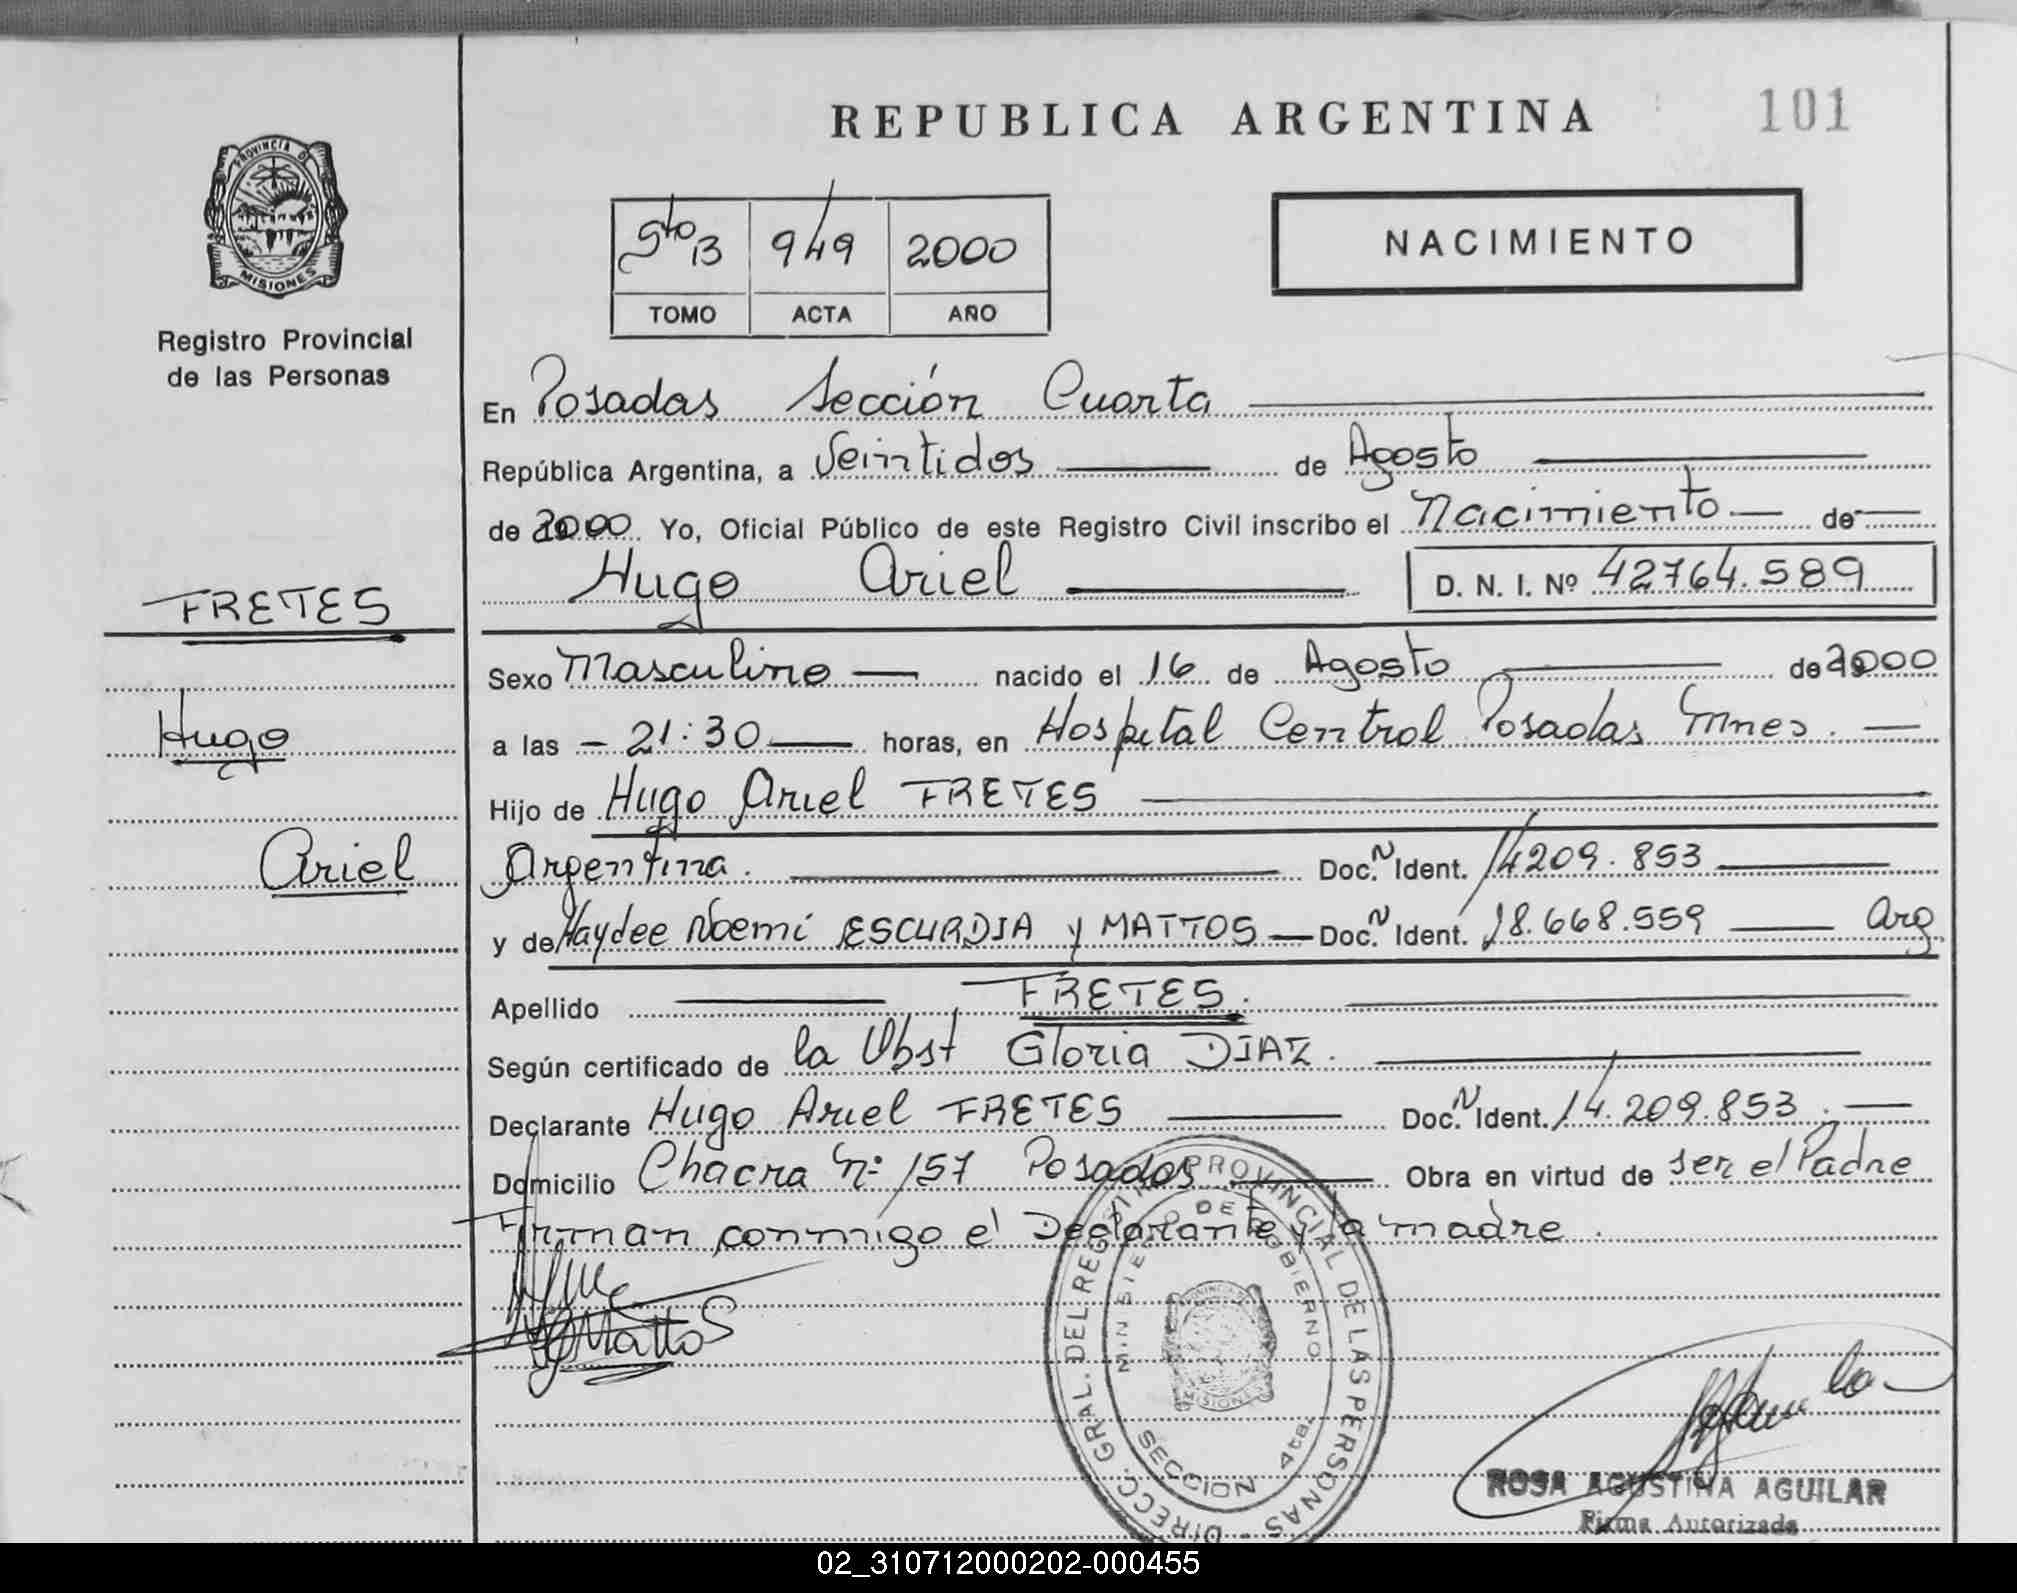 REPUBLICA ARGENTINA
101
PROVINCIA DE
MISIONES
Registro Provincial
de las Personas
5to B 949 2000
TOMO ACTA AÑO
NACIMIENTO
En Posadas Sección Cuarta
República Argentina, a Veintidos de Agosto
de 2000 Yo, Oficial Público de este Registro Civil inscribo el Nacimiento de
Hugo Ariel D. N. I. Nº 42764.589
FRETES
Hugo
Ariel
Sexo Masculino nacido el 16 de Agosto de 2000
a las 21:30 horas, en Hospital Central Posadas Mnes.
Hijo de Hugo Ariel FRETES
Argentina. Doc. N Ident. 14209.853
y de Haydee Noemi ESCURDIA y MATTOS Doc. N Ident. 18.668.559 Arg
Apellido FRETES.
Según certificado de la Obst Gloria DIAZ.
Declarante Hugo Ariel FRETES Doc. N Ident. 14.209.853.
Domicilio Chacra Nº 157 Posadas Obra en virtud de ser el Padre
Firman conmigo el Declarante y la madre.
Mattos
DIRECC. GRAL. DEL REGISTRO PROVINCIAL DE LAS PERSONAS
MINISTERIO DE GOBIERNO
SECCION 4ta.
ROSA AGUSTINA AGUILAR
Firma Autorizada
02_310712000202-000455